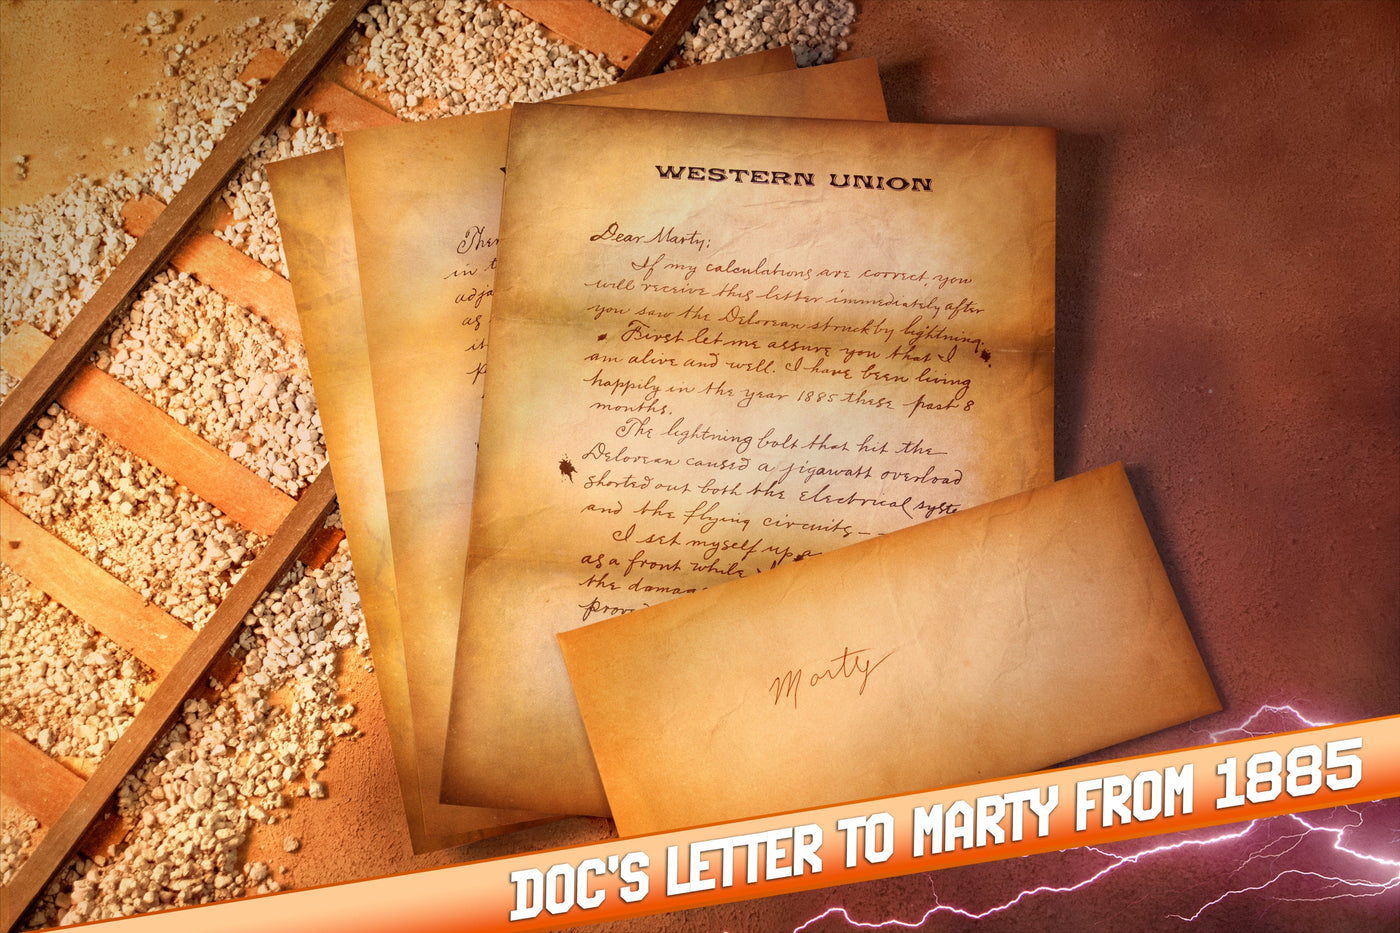 WESTERN UNION
Dear Marty;
If my calculations are correct, you
will receive this letter immediately after
you saw the Delorean struck by lightning.
First let me assure you that I
am alive and well. I have been living
happily in the year 1885 these past 8
months.
The lightning bolt that hit the
Delorean caused a jigawatt overload
shorted out both the electrical syste
and the flying circuits--
I set myself up a
as a front while
the damag
prov
Ther
in t
adja
as
it
p
Marty
DOC'S LETTER TO MARTY FROM 1885